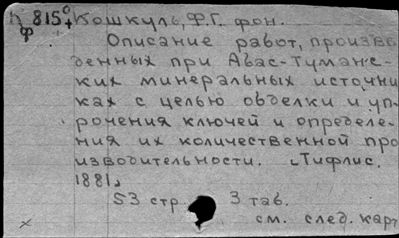 п 815 Кошкуль, Ф.Г. фон.
ф
Описание работ, произве-
денных при Абас-Туманс-
ких минеральных источни
ках с целью обделки и уп-
рочения ключей и определе-
ния их количественной про
изводительности. Тифлис.
1881.
53 стр. 3 таб.
см. след. карт